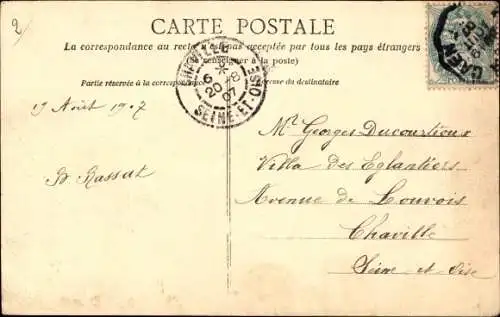 2
CARTE POSTALE
La correspondance au recto n'est pas acceptée par tous les pays étrangers
(Se renseigner à la poste)
Partie réservée à la correspondance
Adresse du destinataire
CHAVILLE
6 *
20-8
07
SEINE-ET-OISE
CAEN
19 Août 1907
B. Rassat
Mr Georges Ducourtioux
Villa des Eglantiers
Avenue de Louvois
Chaville
Seine et Oise